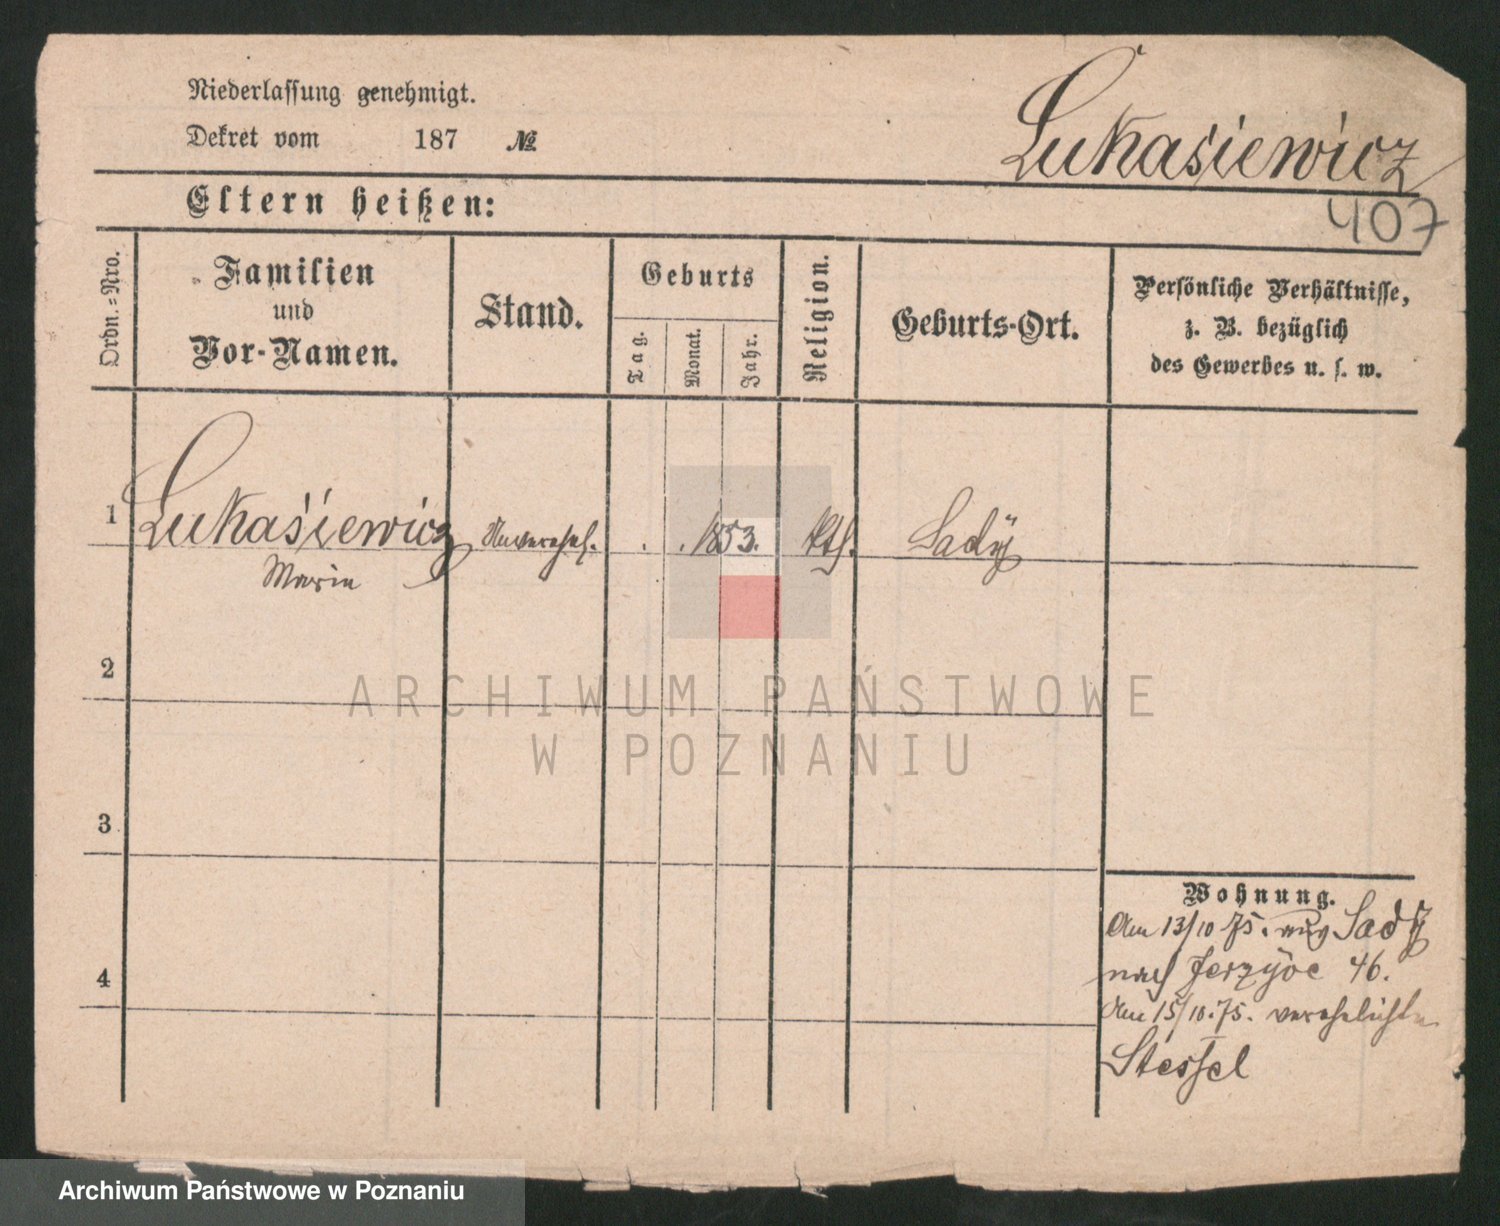 Niederlassung genehmigt.
Dekret vom 187 №
Lukaśiewicz
407
Eltern heißen:
Ordn.-Nro.
Familien
und
Vor-Namen.
Stand.
Geburts
Tag.
Monat.
Jahr.
Religion.
Geburts-Ort.
Persönliche Verhältnisse,
z. B. bezüglich
des Gewerbes u. s. w.
1 Lukaśiewicz Unverehel. . . 1853. Kth. Sady
Marie
2
3
4
Wohnung.
Am 13/10 75. aus Sady
nach Jerzyce 46.
Am 15/10.75. verehelichte
Stessel
ARCHIWUM PAŃSTWOWE
W POZNANIU
Archiwum Państwowe w Poznaniu